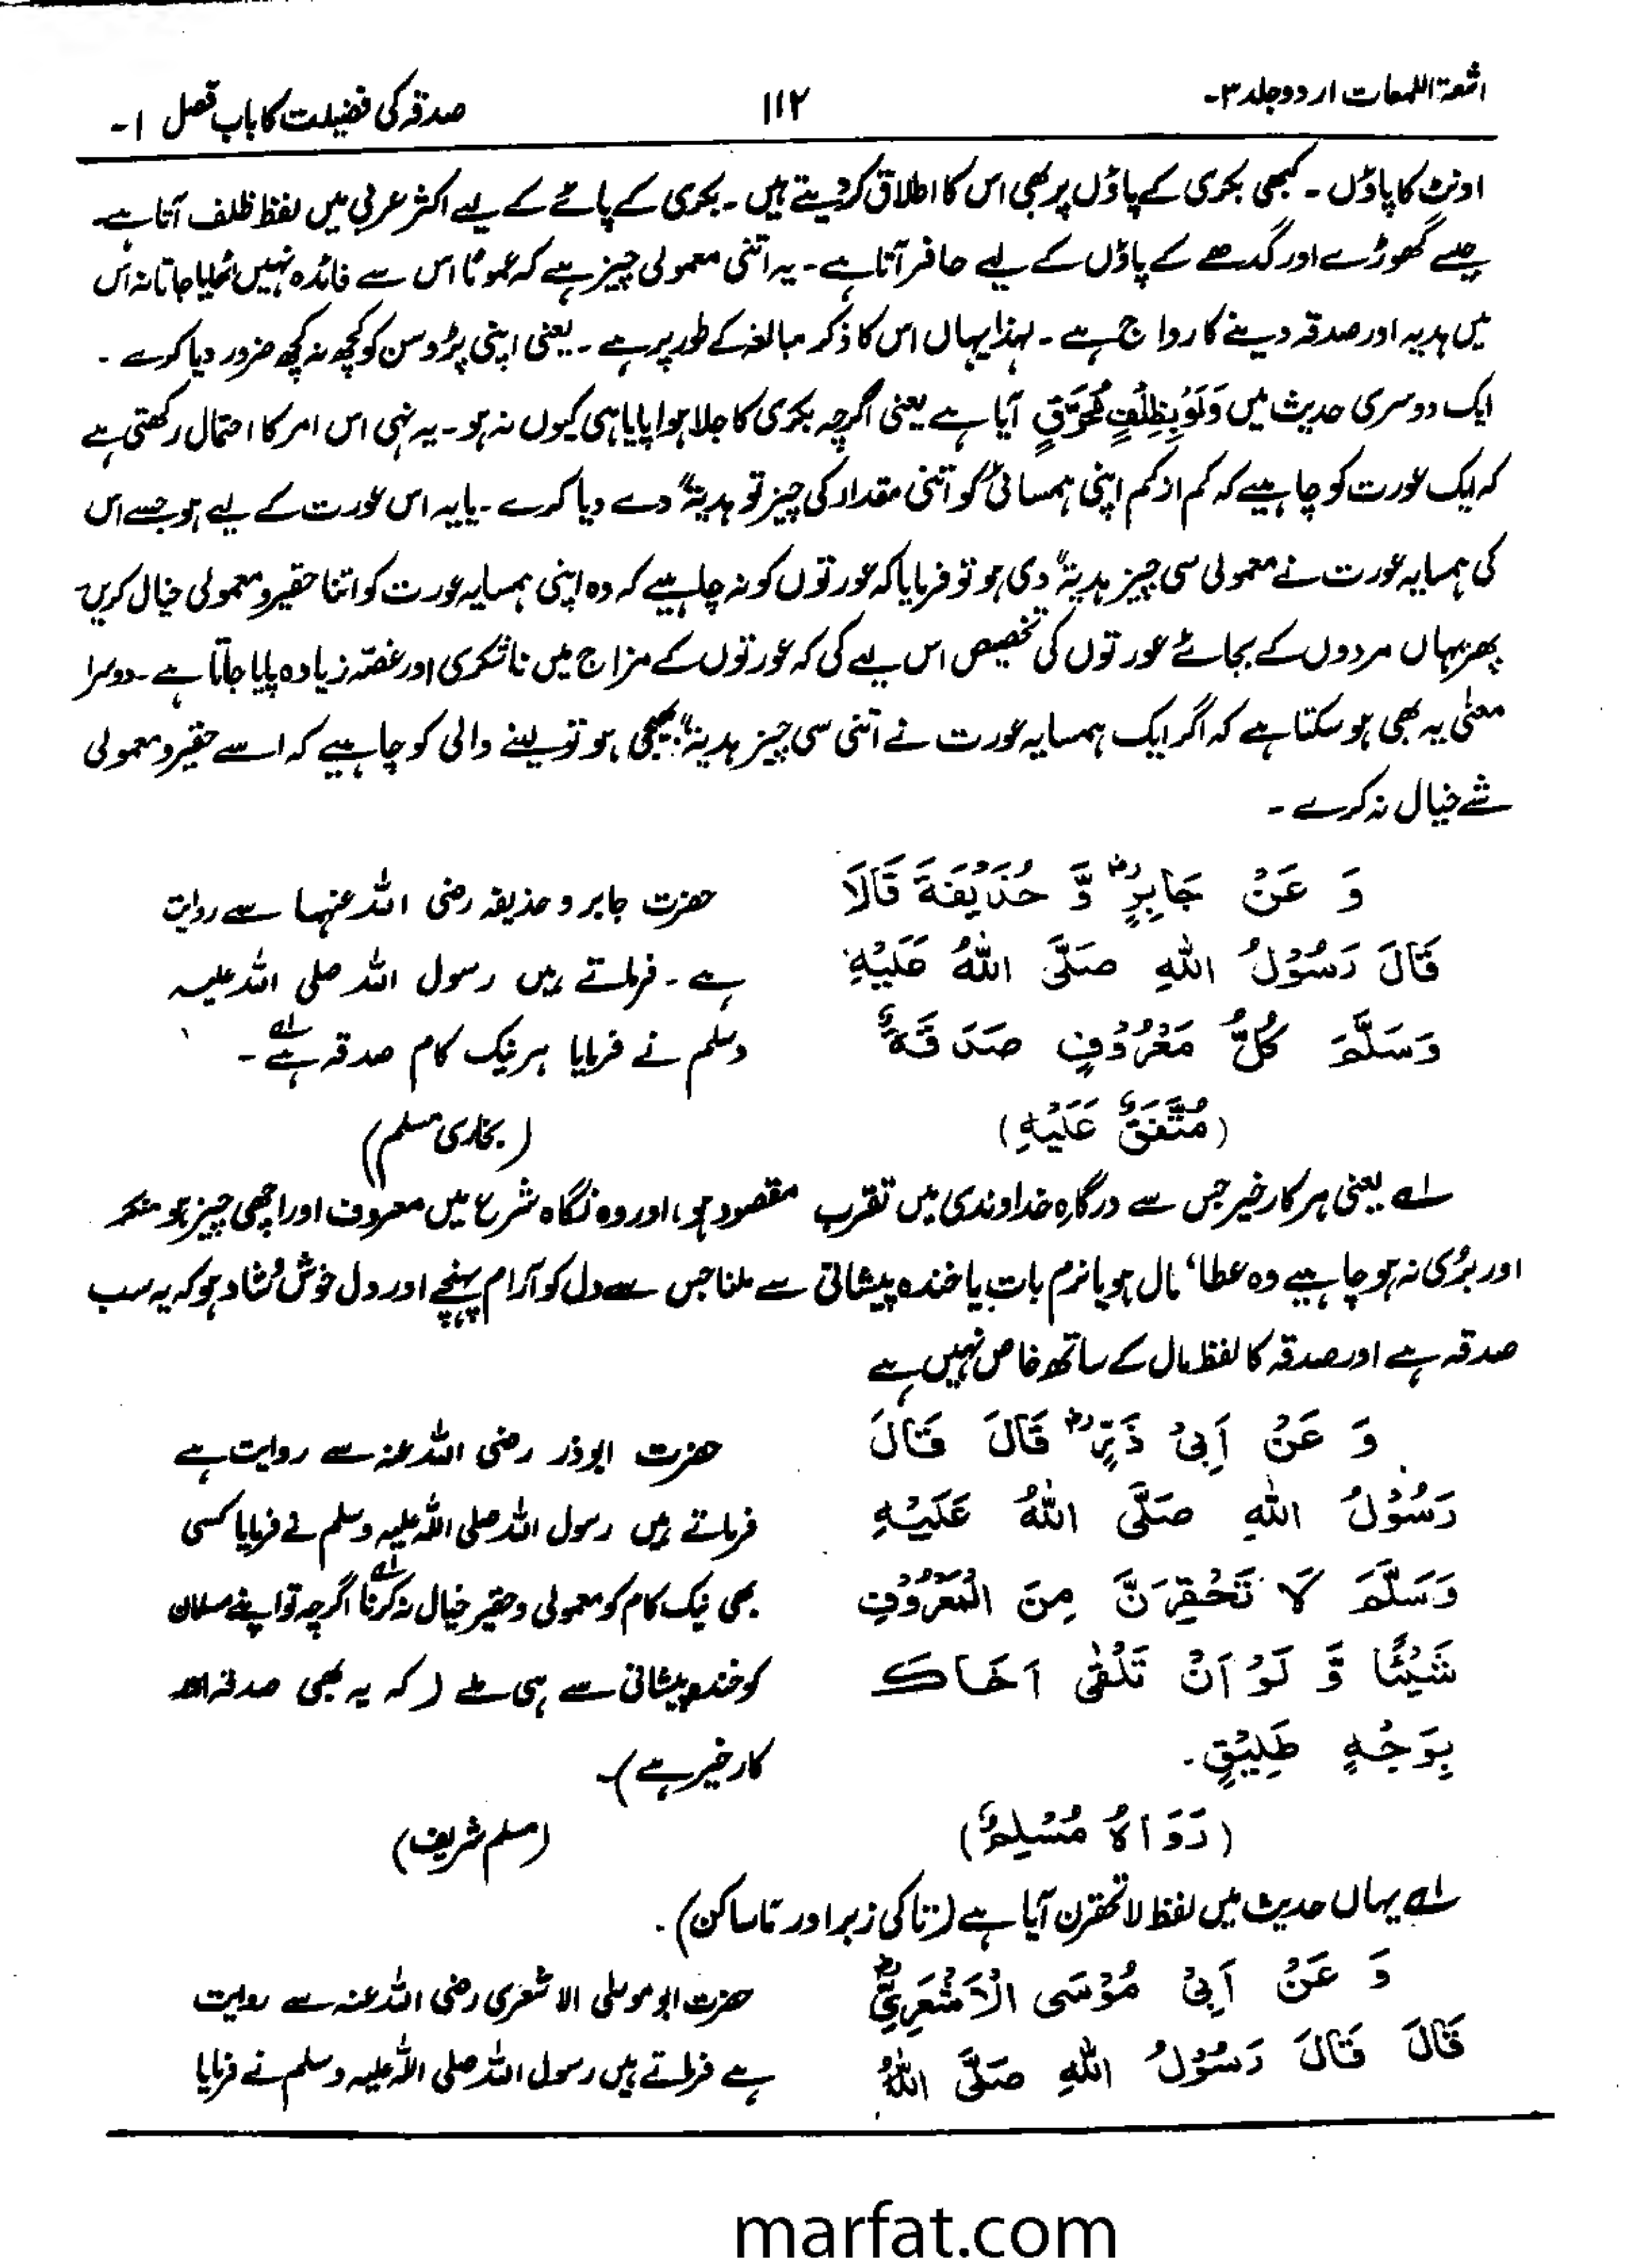 اشعۃ اللمعات اردو جلد ۳۔ ۱۱۲ صدقہ کی فضیلت کا باب فصل ۱۔
اونٹ کا پاؤں ۔ کبھی بکری کے پاؤں پر بھی اس کا اطلاق کر دیتے ہیں ۔ بکری کے پائے کے لیے اکثر عربی میں لفظ ظلف آتا ہے
جیسے گھوڑے اور گدھے کے پاؤں کے لیے حافر آتا ہے ۔ یہ اتنی معمولی چیز ہے کہ عموماً اس سے فائدہ نہیں اٹھایا جاتا نہ اس
میں ہدیہ اور صدقہ دینے کا رواج ہے ۔ لہذا یہاں اس کا ذکر مبالغہ کے طور پر ہے ۔ یعنی اپنی پڑوسن کو کچھ نہ کچھ ضرور دیا کرے ۔
ایک دوسری حدیث میں وَلَوْ بِظِلْفٍ مُحَرَّقٍ آیا ہے یعنی اگرچہ بکری کا جلا ہوا پایا ہی کیوں نہ ہو ۔ یہ نہی اس امر کا احتمال رکھتی ہے
کہ ایک عورت کو چاہیے کہ کم از کم اپنی ہمسائی کو اتنی مقدار کی چیز تو ہدیۃً دے دیا کرے ۔ یا یہ اس عورت کے لیے ہو جسے اس
کی ہمسایہ عورت نے معمولی سی چیز ہدیۃً دی ہو تو فرمایا کہ عورتوں کو نہ چاہیے کہ وہ اپنی ہمسایہ عورت کو اتنا حقیر و معمولی خیال کریں
پھر یہاں مردوں کے بجائے عورتوں کی تخصیص اس لیے کی کہ عورتوں کے مزاج میں ناشکری اور غصّہ زیادہ پایا جاتا ہے ۔ دوسرا
معنٰی یہ بھی ہو سکتا ہے کہ اگر ایک ہمسایہ عورت نے اتنی سی چیز ہدیۃً بھیجی ہو تو لینے والی کو چاہیے کہ اسے حقیر و معمولی
شے خیال نہ کرے ۔
وَ عَنْ جَابِرٍؓ وَّ حُذَيْفَةَ قَالَا
قَالَ رَسُوْلُ اللهِ صَلَّى اللهُ عَلَيْهِ
وَسَلَّمَ كُلُّ مَعْرُوْفٍ صَدَقَةٌ
(مُتَّفَقٌ عَلَيْهِ)
حضرت جابر و حذیفہ رضی اللہ عنہما سے روایت
ہے ۔ فرماتے ہیں رسول اللہ صلی اللہ علیہ
وسلم نے فرمایا ہر نیک کام صدقہ ہے لہ ۔
(بخاری مسلم)
لہ یعنی ہر کار خیر جس سے درگاہِ خداوندی میں تقرب مقصود ہو، اور وہ نگاہ شرع میں معروف اور اچھی چیز ہو منکر
اور بُری نہ ہو چاہیے وہ عطا، مال ہو یا نرم بات یا خندہ پیشانی سے ملنا جس سے دل کو آرام پہنچے اور دل خوش و شاد ہو کہ یہ سب
صدقہ ہے اور صدقہ کا لفظ مال کے ساتھ خاص نہیں ہے
وَ عَنْ اَبِيْ ذَرٍّؓ قَالَ قَالَ
رَسُوْلُ اللهِ صَلَّى اللهُ عَلَيْهِ
وَسَلَّمَ لَا تَحْقِرَنَّ مِنَ الْمَعْرُوْفِ
شَيْئًا وَّ لَوْ اَنْ تَلْقٰى اَخَاكَ
بِوَجْهٍ طَلِيْقٍ ۔
(رَوَاهُ مُسْلِمٌ)
حضرت ابوذر رضی اللہ عنہ سے روایت ہے
فرماتے ہیں رسول اللہ صلی اللہ علیہ وسلم نے فرمایا کسی
بھی نیک کام کو معمولی و حقیر خیال نہ کرنا لہ اگرچہ تو اپنے مسلمان
کو خندہ پیشانی سے ہی ملے (کہ یہ بھی صدقہ اور
کار خیر ہے)۔
(مسلم شریف)
لہ یہاں حدیث میں لفظ لا تحقرن آیا ہے (تا کی زبر اور تا ساکن) ۔
وَ عَنْ اَبِيْ مُوْسَى الْاَشْعَرِيِّؓ
قَالَ قَالَ رَسُوْلُ اللهِ صَلَّى اللهُ
حضرت ابو موسٰی الاشعری رضی اللہ عنہ سے روایت
ہے فرماتے ہیں رسول اللہ صلی اللہ علیہ وسلم نے فرمایا
marfat.com